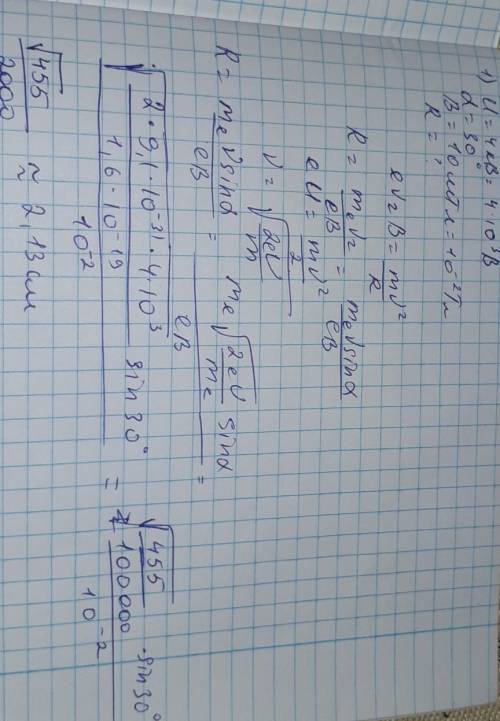 1) U = 4 кВ = 4·10³ В
α = 30°
B = 10 мТл = 10⁻² Тл
R = ?
ev₂B = mv²/R
R = mₑv₂/eB = mₑv sinα/eB
eU = mv²/2
v = √(2eU/m)
R = mₑv sinα/eB = mₑ√(2eU/mₑ) sinα/eB =
√(2·9,1·10⁻³¹·4·10³/1,6·10⁻¹⁹) sin30°/10⁻² = √455/100000 · sin30°/10⁻²
√455/2000 ≈ 2,13 см